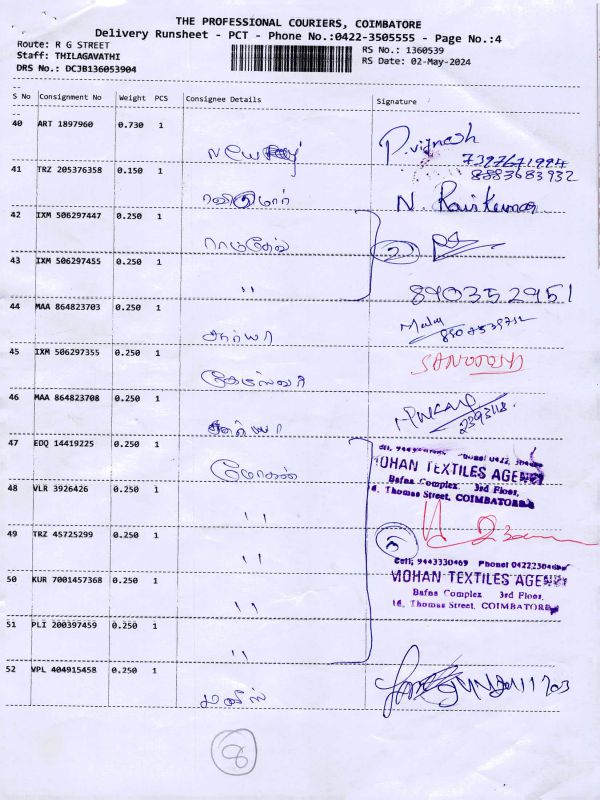 THE PROFESSIONAL COURIERS, COIMBATORE
Delivery Runsheet - PCT - Phone No.:0422-3505555 - Page No.:4
Route: R G STREET
RS No.: 1360539
Staff: THILAGAVATHI
RS Date: 02-May-2024
DRS No.: DCJB136053904
S No Consignment No Weight PCS Consignee Details Signature
40 ART 1897960 0.730 1 P.vignesh
41 TRZ 205376358 0.150 1 8883683932
N. Ravikumar
42 IXM 506297447 0.250 1 ராமதேவ் 2
43 IXM 506297455 0.250 1 " 890352951
44 MAA 864823703 0.250 1
45 IXM 506297355 0.250 1
46 MAA 864823708 0.250 1 2393118
47 EDQ 14419225 0.250 1 மோகன்
MOHAN TEXTILES AGENCY
Bafna Complex 3rd Floor,
48 VLR 3926426 0.250 1 "
16, Thomas Street, COIMBATORE
49 TRZ 45725299 0.250 1 " 5
Cell; 9443330469 Phone: 0422230
50 KUR 7001457368 0.250 1 "
MOHAN TEXTILES AGENCY
Bafna Complex 3rd Floor,
16, Thomas Street, COIMBATORE
51 PLI 200397459 0.250 1 "
52 VPL 404915458 0.250 1
8